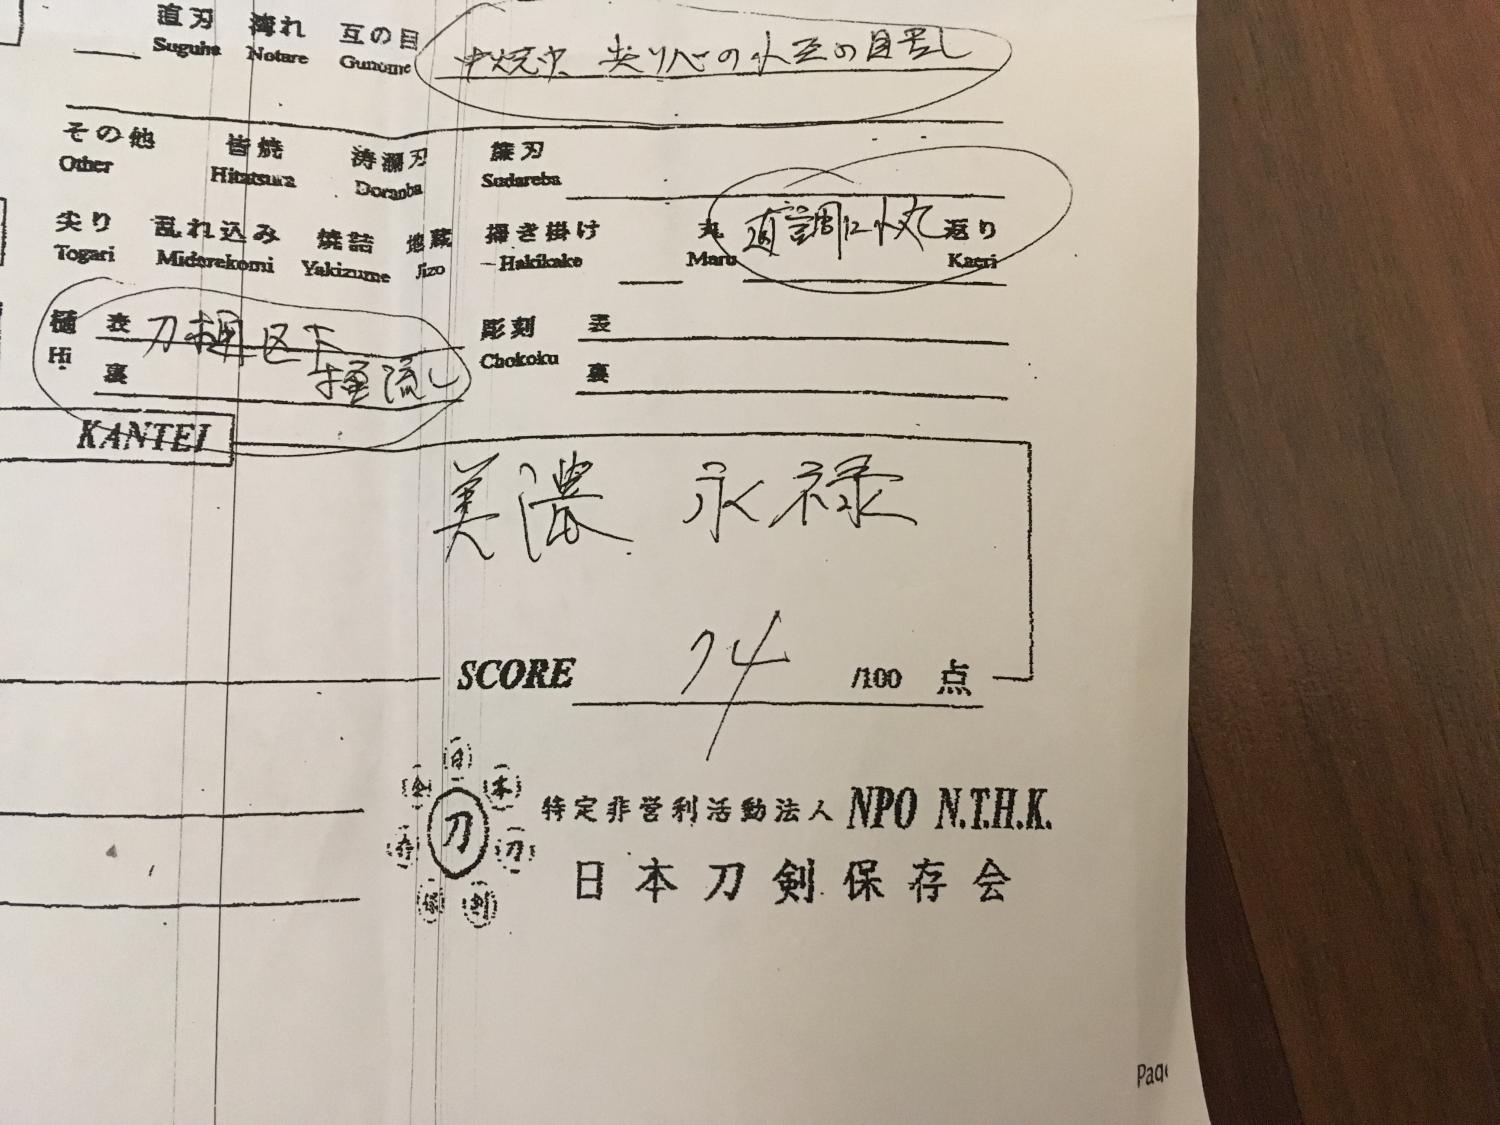 直刃 湾れ 互の目 中焼次 尖り心の小互の目乱し
Suguha Notare Gunome
その他 皆焼 涛瀾刃 簾刃
Other Hitatsura Doranba Sudareba
尖り 乱れ込み 焼詰 地蔵 掃き掛け 丸 直調に小丸 返り
Togari Midarekomi Yakizume Jizo Hakikake Maru Kaeri
樋 表 刀樋区下 彫刻 表
Hi Chokoku
裏 掻流し 裏
KANTEI
美濃 永禄
SCORE 74 /100 点
全日本刀剣保存
刀
特定非営利活動法人 NPO N.T.H.K.
日本刀剣保存会